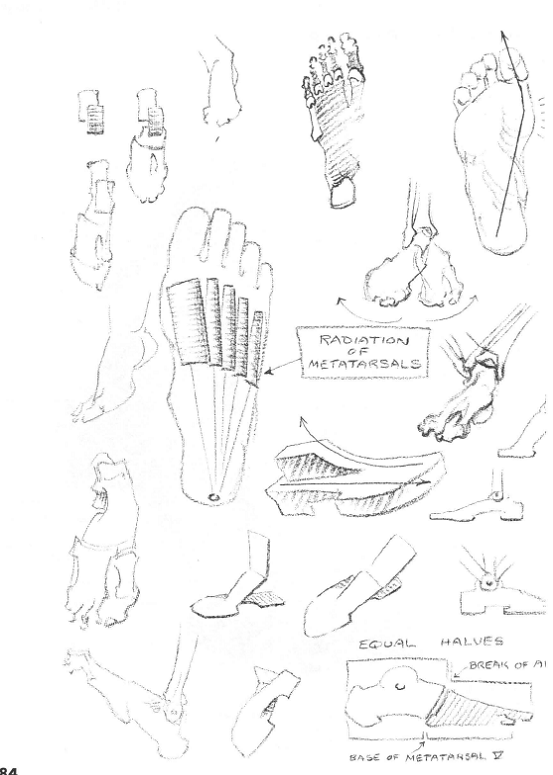 RADIATION
OF
METATARSALS
EQUAL HALVES
BREAK OF
BASE OF METATARSAL V
84